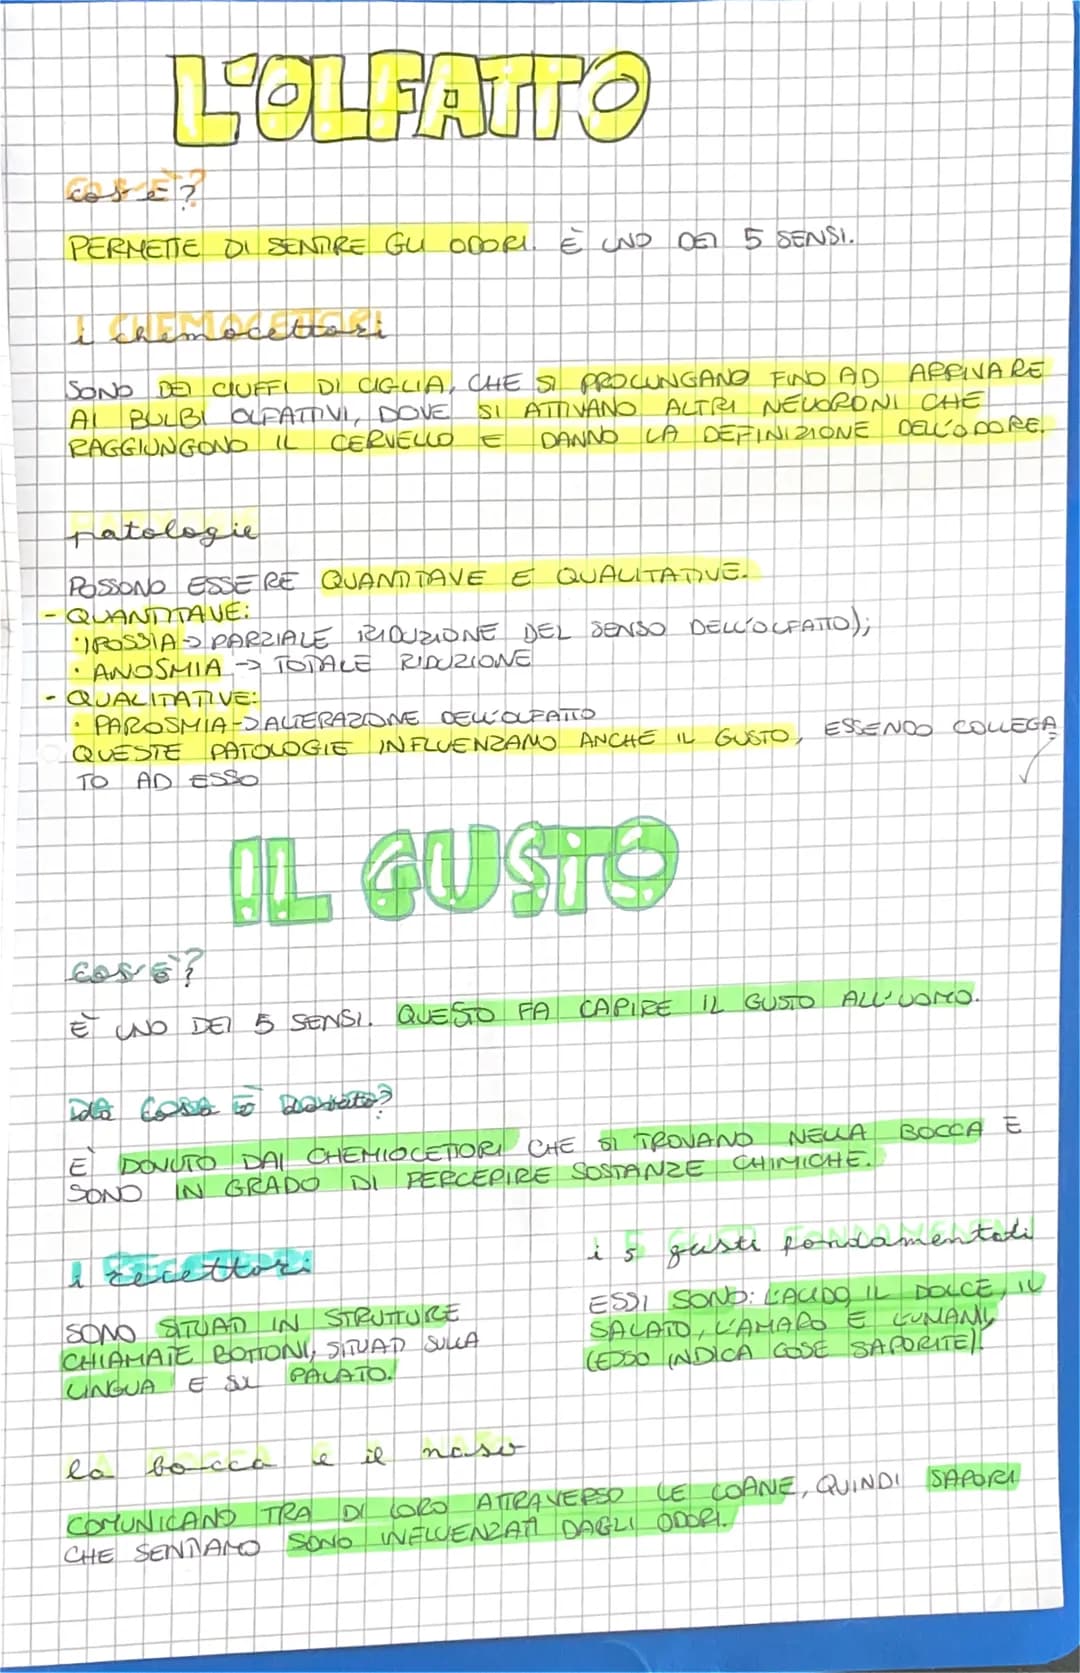 L'OLFATTO
cos'è?
PERMETTE DI SENTIRE GLI ODORI. È UNO DEI 5 SENSI.
i chemocettori
SONO DEI CIUFFI DI CIGLIA, CHE SI PROLUNGANO FINO AD ARRIVARE
AI BULBI OLFATTIVI, DOVE SI ATTIVANO ALTRI NEURONI CHE
RAGGIUNGONO IL CERVELLO E DANNO LA DEFINIZIONE DELL'ODORE.
patologie
POSSONO ESSERE QUANTITAVE E QUALITATIVE.
- QUANTITAVE:
• IPOSSIA → PARZIALE RIDUZIONE DEL SENSO DELL'OLFATTO);
• ANOSMIA → TOTALE RIDUZIONE
- QUALITATIVE:
• PAROSMIA → ALTERAZIONE DELL'OLFATTO
QUESTE PATOLOGIE INFLUENZAMO ANCHE IL GUSTO, ESSENDO COLLEGA
TO AD ESSO
IL GUSTO
cos'è?
È UNO DEI 5 SENSI. QUESTO FA CAPIRE IL GUSTO ALL'UOMO.
da cosa è dovuto?
E' DOVUTO DAI CHEMIOCETTORI CHE SI TROVANO NELLA BOCCA E
SONO IN GRADO DI PERCEPIRE SOSTANZE CHIMICHE.
i recettori
SONO SITUATI IN STRUTTURE
CHIAMATE BOTTONI, SITUATI SULLA
LINGUA E SUL PALATO.
i 5 gusti fondamentali
ESSI SONO: L'ACIDO, IL DOLCE, IL
SALATO, L'AMARO E L'UNAMI,
(ESSO INDICA COSE SAPORITE).
la bocca e il naso
COMUNICANO TRA DI LORO ATTRAVERSO LE COANE, QUINDI SAPORI
CHE SENTIAMO SONO INFLUENZATI DAGLI ODORI.